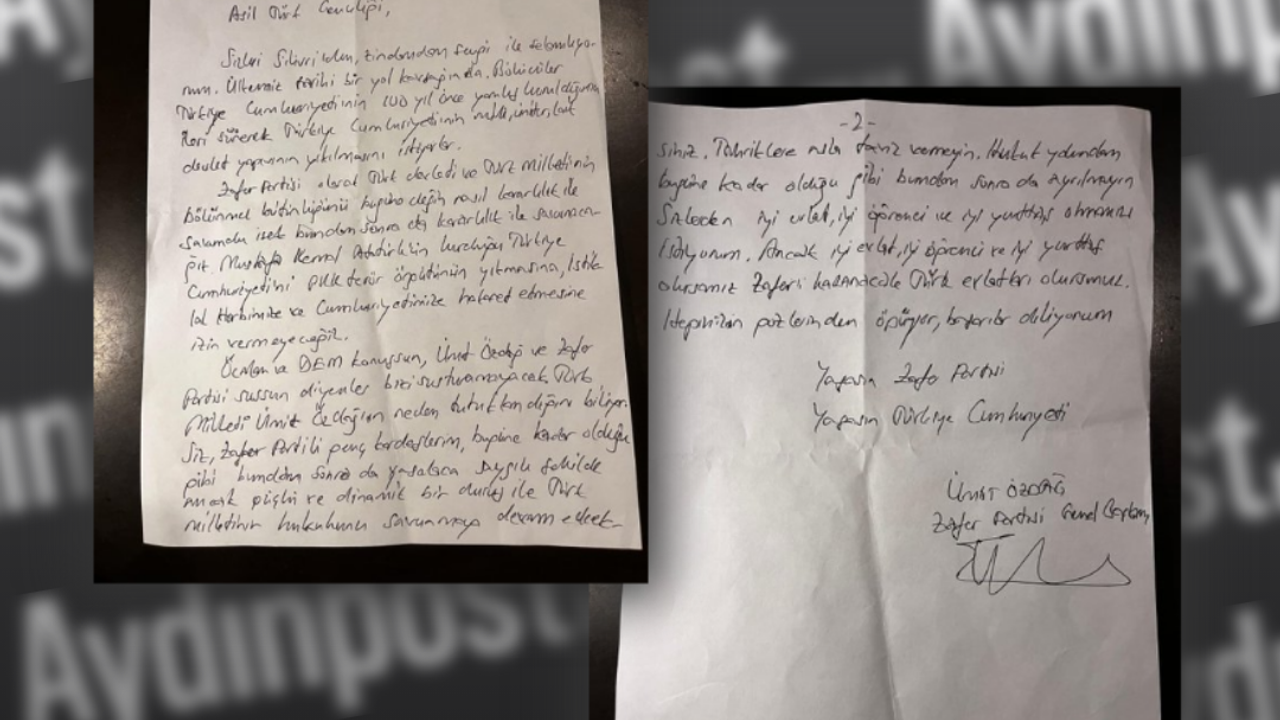 Asil Türk Gençliği,
Sizleri Silivri'den, zindandan sevgi ile selamlıyo-
rum. Ülkemiz tarihi bir yol kavşağında. Bölücüler
Türkiye Cumhuriyetinin 100 yıl önce yanlış kurulduğunu
ileri sürerek Türkiye Cumhuriyetinin milli, üniter, laik
devlet yapısının yıkılmasını istiyorlar.
Zafer Partisi olarak Türk devleti ve Türk Milletinin
bölünmez bütünlüğünü bugüne değin nasıl kararlılık ile
savunduk isek bundan sonra da kararlılık ile savunaca-
ğız. Mustafa Kemal Atatürk'ün kurduğu Türkiye
Cumhuriyetini PKK terör örgütünün yıkmasına, İstik-
lal Harbimize ve Cumhuriyetimize hakaret etmesine
izin vermeyeceğiz.
Öcalan ve DEM konuşsun, Ümit Özdağ ve Zafer
Partisi sussun diyenler bizi susturamayacak. Türk
Milleti Ümit Özdağ'ın neden tutuklandığını biliyor.
Siz, Zafer Partili genç kardeşlerim, bugüne kadar olduğu
gibi bundan sonra da yasalara saygılı şekilde
ancak güçlü ve dinamik bir duruş ile Türk
milletinin hukukunu savunmaya devam edecek-
-2-
siniz. Tahriklere asla taviz vermeyin. Hukuk yolundan
bugüne kadar olduğu gibi bundan sonra da ayrılmayın
Sizlerden iyi evlat, iyi öğrenci ve iyi yurttaş olmanızı
istiyorum. Ancak iyi evlat, iyi öğrenci ve iyi yurttaş
olursanız Zaferi kazanacak Türk evlatları olursunuz.
Hepinizin gözlerinden öpüyor, başarılar diliyorum
Yaşasın Zafer Partisi
Yaşasın Türkiye Cumhuriyeti
Ümit ÖZDAĞ
Zafer Partisi Genel Başkanı
Aydınpost